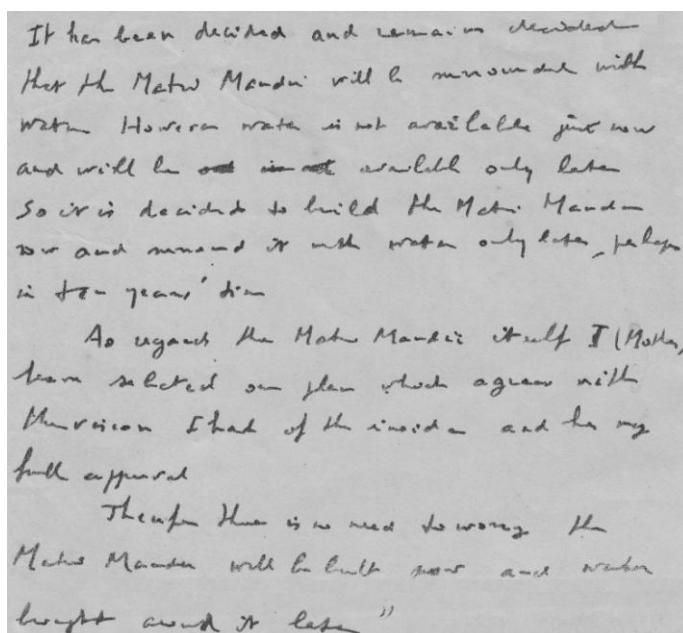 It has been decided and remains decided
that the Matri Mandir will be surrounded with
water. However water is not available just now
and will be available only later
So it is decided to build the Matri Mandir
now and surround it with water only later, perhaps
in ten years' time
As regards the Matri Mandir itself I (Mother)
have selected one plan which agrees with
the vision I had of the inside and has my
full approval
Therefore there is no need to worry the
Matri Mandir will be built now and water
brought around it later"